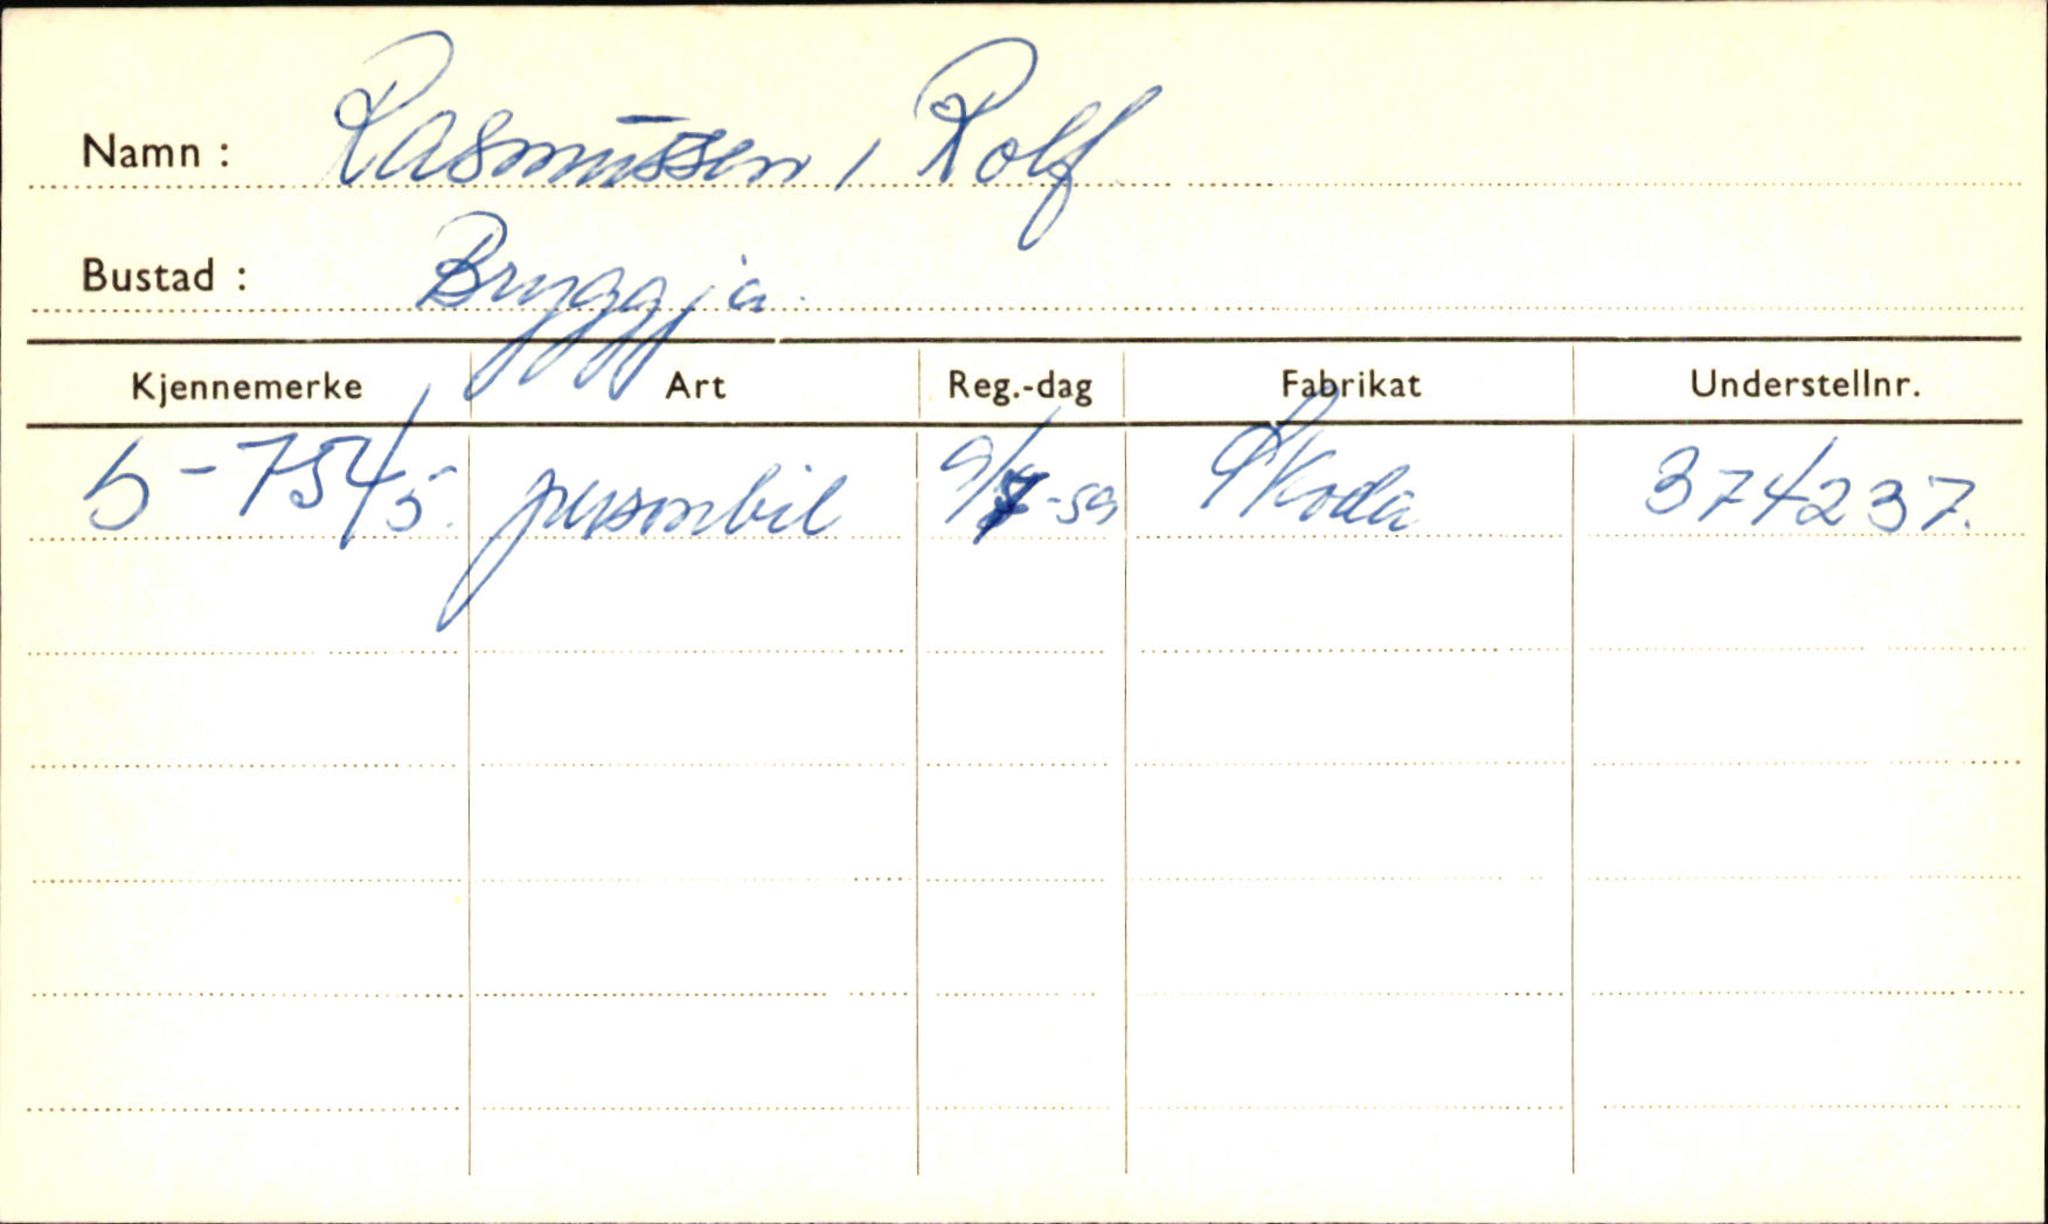 Namn : Rasmussen, Rolf
Bustad : Bryggja.
Kjennemerke Art Reg.-dag Fabrikat Understellnr.
S-7545. personbil 9/7-59 Skoda 374237.